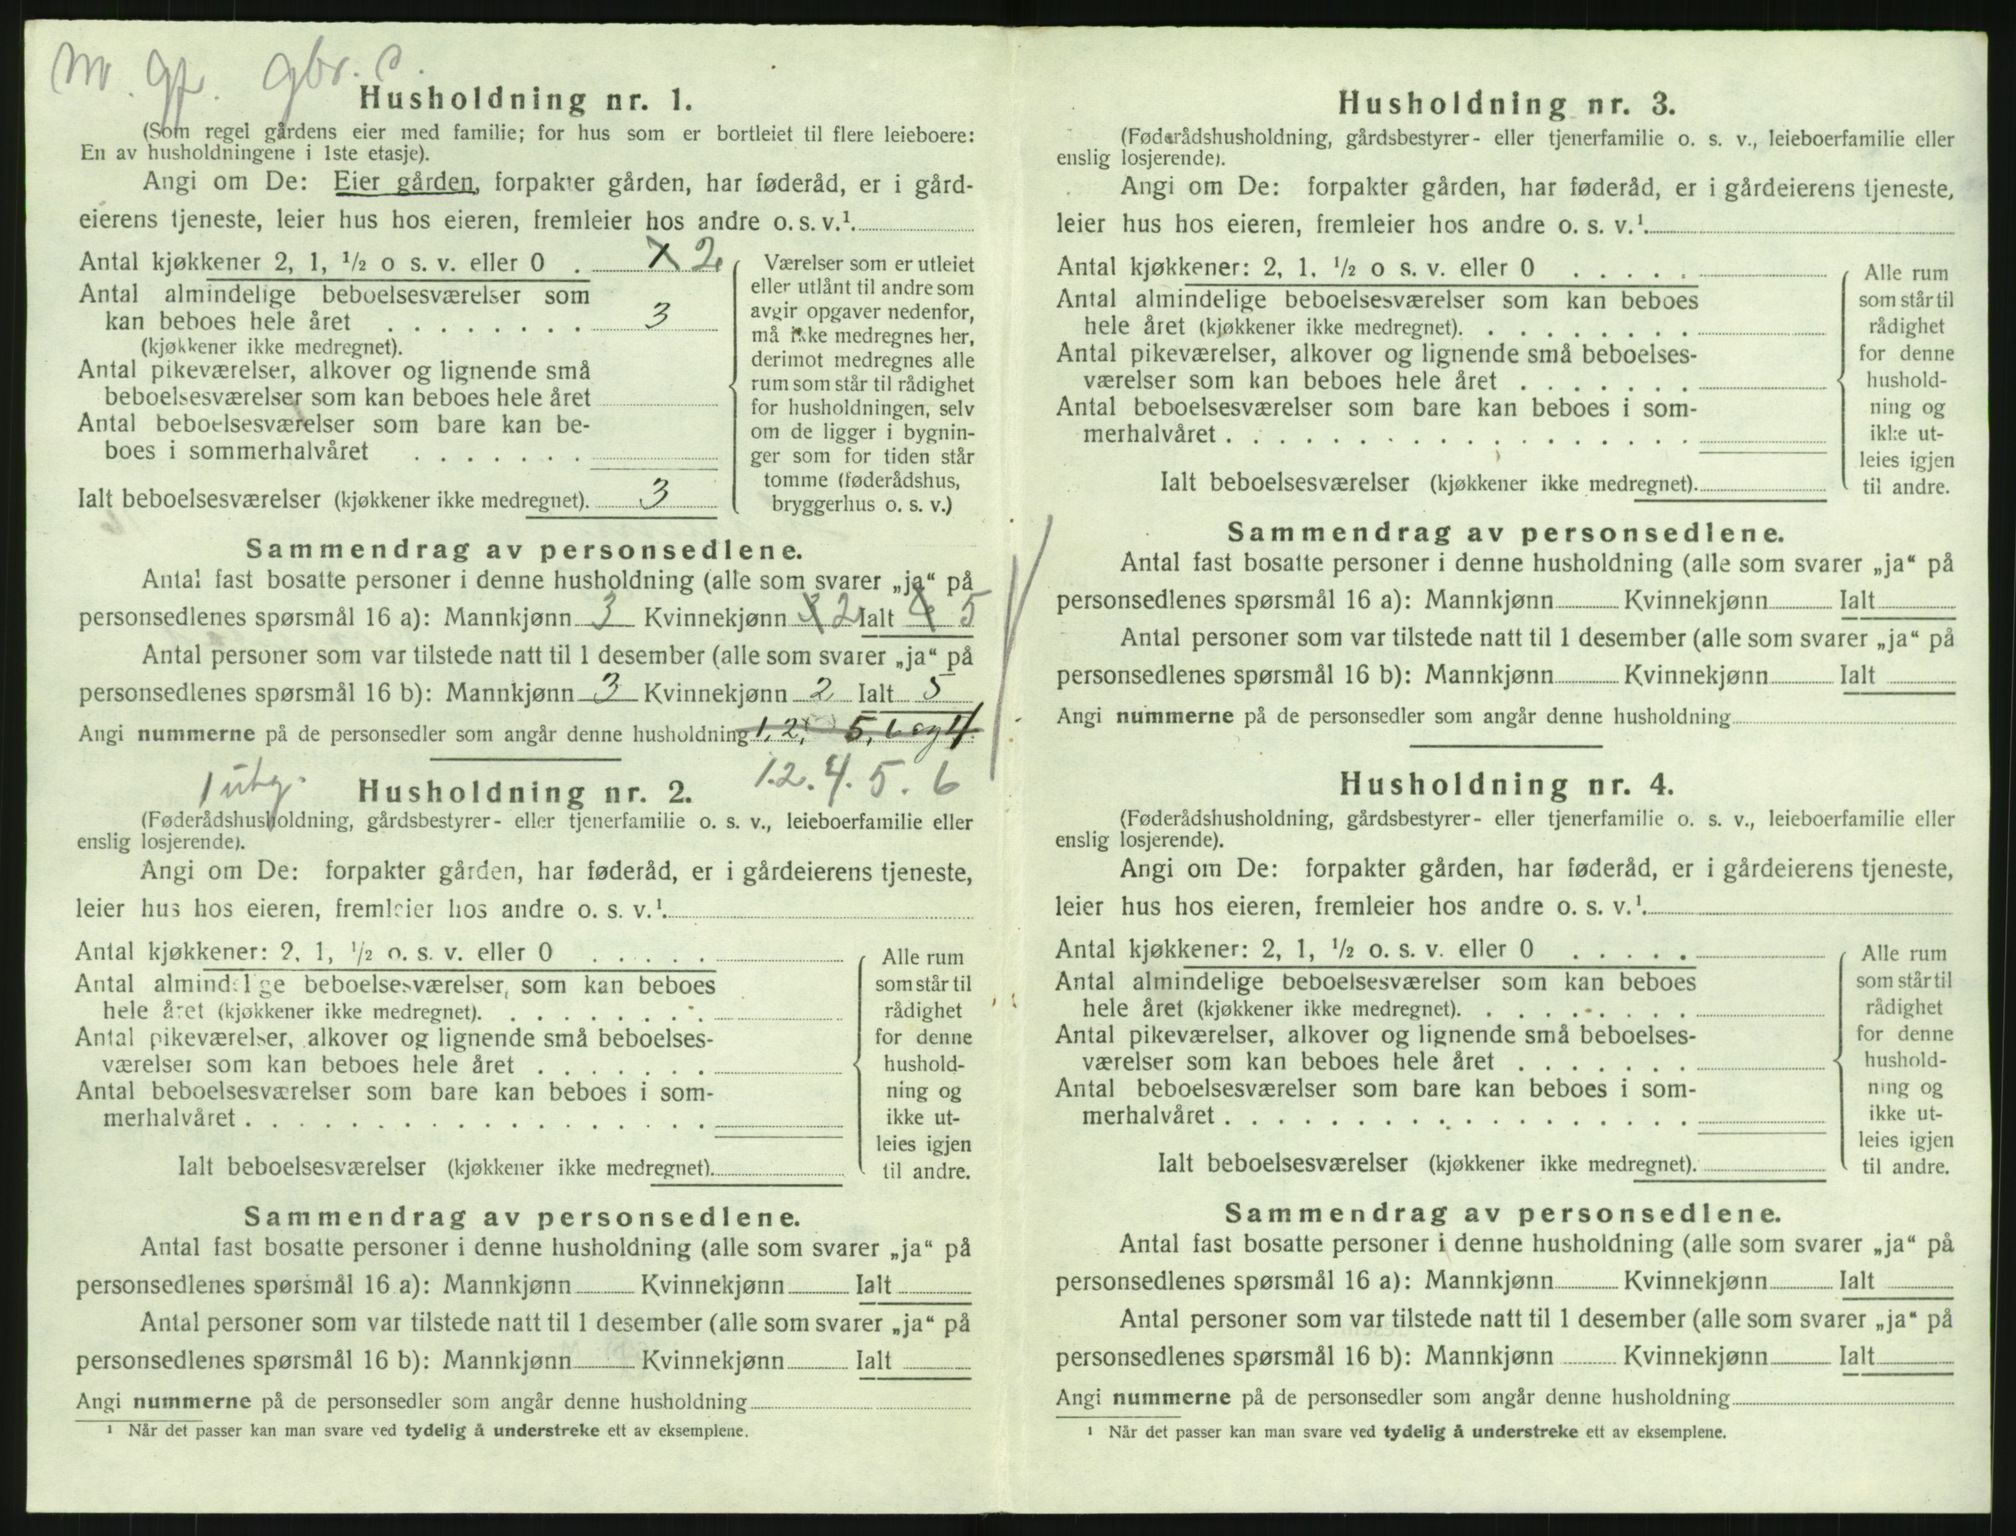 m. gf. gbr. c.
Husholdning nr. 1.
(Som regel gårdens eier med familie; for hus som er bortleiet til flere leieboere:
En av husholdningene i 1ste etasje).
Angi om De: Eier gården, forpakter gården, har føderåd, er i gård-
eierens tjeneste, leier hus hos eieren, fremleier hos andre o. s. v.¹.
Antal kjøkkener 2, 1, ½ o s. v. eller 0 . 2
Antal almindelige beboelsesværelser som
kan beboes hele året . . . . . . . . 3
(kjøkkener ikke medregnet).
Antal pikeværelser, alkover og lignende små
beboelsesværelser som kan beboes hele året
Antal beboelsesværelser som bare kan be-
boes i sommerhalvåret . . . . . . .
Ialt beboelsesværelser (kjøkkener ikke medregnet). 3
Værelser som er utleiet
eller utlånt til andre som
avgir opgaver nedenfor,
må ikke medregnes her,
derimot medregnes alle
rum som står til rådighet
for husholdningen, selv
om de ligger i bygnin-
ger som for tiden står
tomme (føderådshus,
bryggerhus o. s. v.)
Sammendrag av personsedlene.
Antal fast bosatte personer i denne husholdning (alle som svarer „ja“ på
personsedlenes spørsmål 16 a): Mannkjønn 3 Kvinnekjønn 3 2 Ialt 5
Antal personer som var tilstede natt til 1 desember (alle som svarer „ja“ på
personsedlenes spørsmål 16 b): Mannkjønn 3 Kvinnekjønn 2 Ialt 5
Angi nummerne på de personsedler som angår denne husholdning 1, 2, 5, 6 og 4
1. 2. 4. 5. 6
1 utg.
Husholdning nr. 2.
(Føderådshusholdning, gårdsbestyrer- eller tjenerfamilie o. s. v., leieboerfamilie eller
enslig losjerende).
Angi om De: forpakter gården, har føderåd, er i gårdeierens tjeneste,
leier hus hos eieren, fremleier hos andre o. s. v.¹.
Antal kjøkkener: 2, 1, ½ o. s. v. eller 0 . . . . .
Antal almindelige beboelsesværelser som kan beboes
hele året (kjøkkener ikke medregnet). . . . . . . . .
Antal pikeværelser, alkover og lignende små beboelses-
værelser som kan beboes hele året . . . . . . .
Antal beboelsesværelser som bare kan beboes i som-
merhalvåret . . . . . . . . . . . . . . . . . .
Ialt beboelsesværelser (kjøkkener ikke medregnet).
Alle rum
som står til
rådighet
for denne
hushold-
ning og
ikke ut-
leies igjen
til andre.
Sammendrag av personsedlene.
Antal fast bosatte personer i denne husholdning (alle som svarer „ja“ på
personsedlenes spørsmål 16 a): Mannkjønn Kvinnekjønn Ialt
Antal personer som var tilstede natt til 1 desember (alle som svarer „ja“ på
personsedlenes spørsmål 16 b): Mannkjønn Kvinnekjønn Ialt
Angi nummerne på de personsedler som angår denne husholdning
¹ Når det passer kan man svare ved tydelig å understreke ett av eksemplene.
Husholdning nr. 3.
(Føderådshusholdning, gårdsbestyrer- eller tjenerfamilie o. s. v., leieboerfamilie eller
enslig losjerende).
Angi om De: forpakter gården, har føderåd, er i gårdeierens tjeneste,
leier hus hos eieren, fremleier hos andre o. s. v.¹.
Antal kjøkkener: 2, 1, ½ o s. v. eller 0 . . . . .
Antal almindelige beboelsesværelser som kan beboes
hele året (kjøkkener ikke medregnet). . . . . . . . .
Antal pikeværelser, alkover og lignende små beboelses-
værelser som kan beboes hele året . . . . . . .
Antal beboelsesværelser som bare kan beboes i som-
merhalvåret . . . . . . . . . . . . . . . . . .
Ialt beboelsesværelser (kjøkkener ikke medregnet).
Alle rum
som står til
rådighet
for denne
hushold-
ning og
ikke ut-
leies igjen
til andre.
Sammendrag av personsedlene.
Antal fast bosatte personer i denne husholdning (alle som svarer „ja“ på
personsedlenes spørsmål 16 a): Mannkjønn Kvinnekjønn Ialt
Antal personer som var tilstede natt til 1 desember (alle som svarer „ja“ på
personsedlenes spørsmål 16 b): Mannkjønn Kvinnekjønn Ialt
Angi nummerne på de personsedler som angår denne husholdning
Husholdning nr. 4.
(Føderådshusholdning, gårdsbestyrer- eller tjenerfamilie o. s. v., leieboerfamilie eller
enslig losjerende).
Angi om De: forpakter gården, har føderåd, er i gårdeierens tjeneste,
leier hus hos eieren, fremleier hos andre o. s. v.¹.
Antal kjøkkener: 2, 1, ½ o. s. v. eller 0 . . . . .
Antal almindelige beboelsesværelser som kan beboes
hele året (kjøkkener ikke medregnet). . . . . . . . .
Antal pikeværelser, alkover og lignende små beboelses-
værelser som kan beboes hele året . . . . . . .
Antal beboelsesværelser som bare kan beboes i som-
merhalvåret . . . . . . . . . . . . . . . . . .
Ialt beboelsesværelser (kjøkkener ikke medregnet).
Alle rum
som står til
rådighet
for denne
hushold-
ning og
ikke ut-
leies igjen
til andre.
Sammendrag av personsedlene.
Antal fast bosatte personer i denne husholdning (alle som svarer „ja“ på
personsedlenes spørsmål 16 a): Mannkjønn Kvinnekjønn Ialt
Antal personer som var tilstede natt til 1 desember (alle som svarer „ja“ på
personsedlenes spørsmål 16 b): Mannkjønn Kvinnekjønn Ialt
Angi nummerne på de personsedler som angår denne husholdning
¹ Når det passer kan man svare ved tydelig å understreke ett av eksemplene.